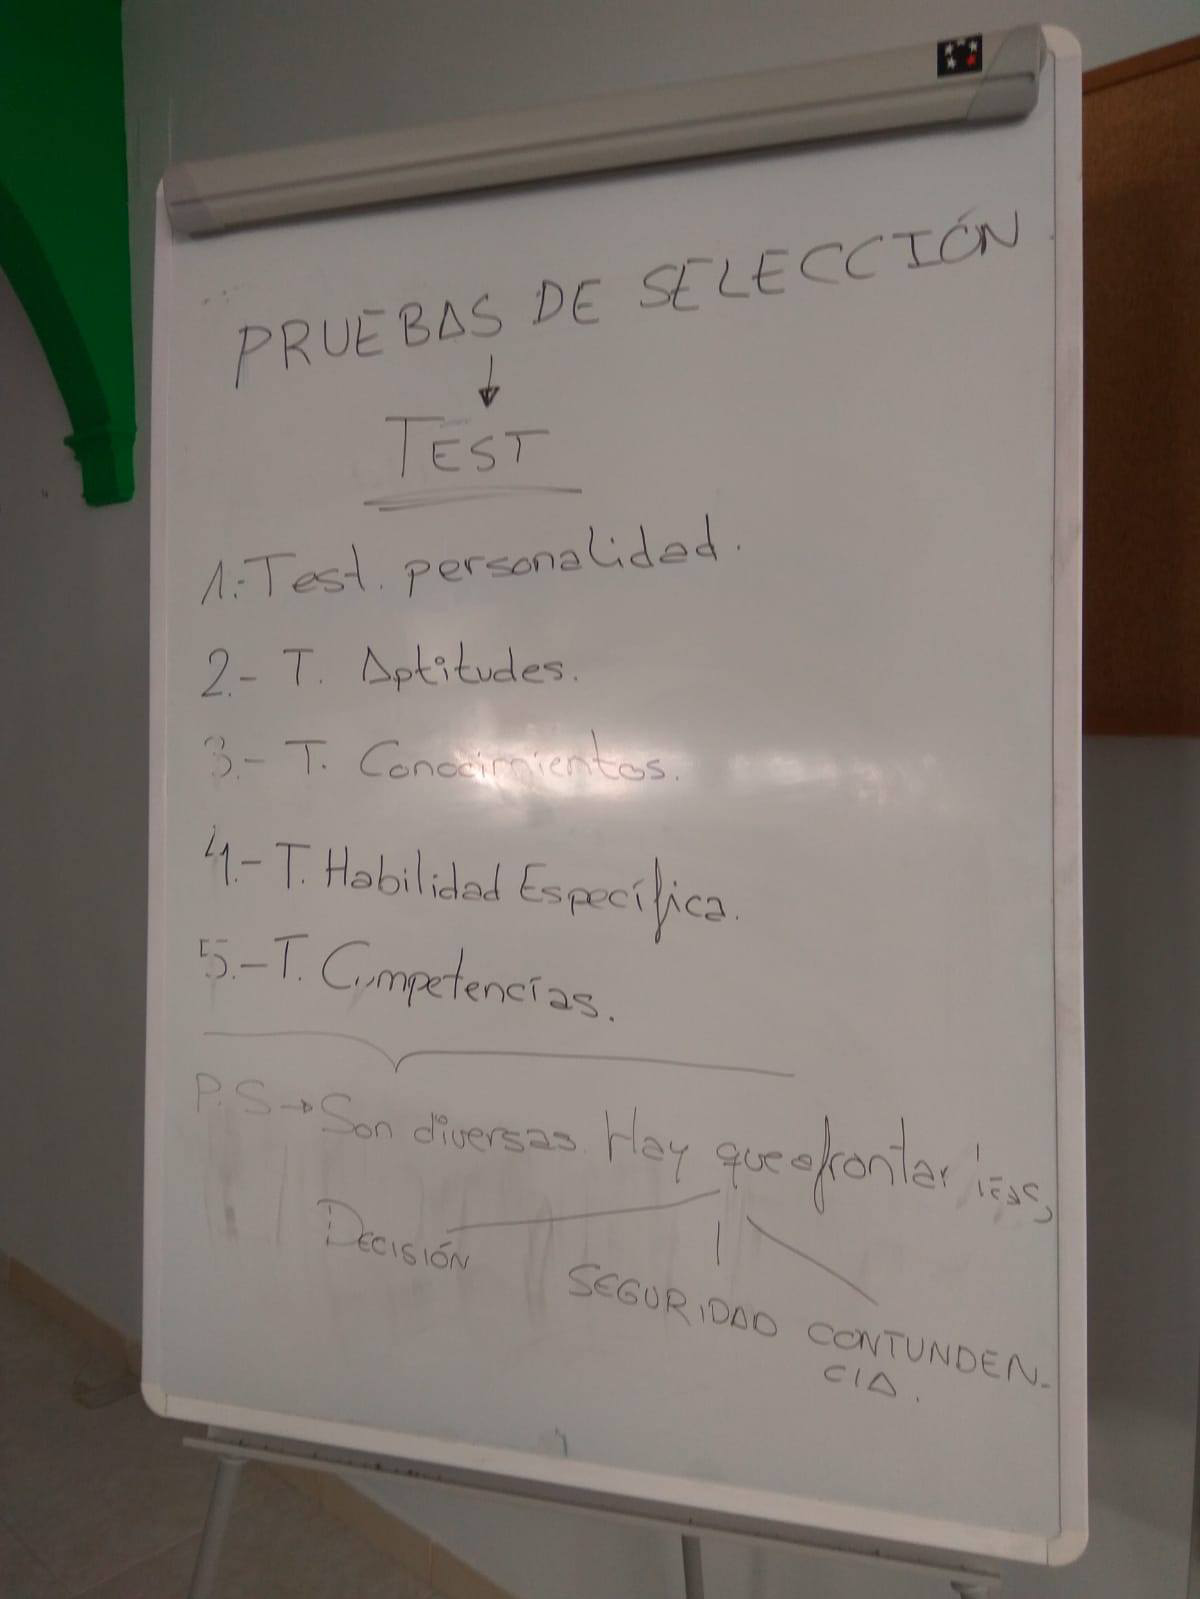 PRUEBAS DE SELECCIÓN
TEST
1.- Test. personalidad.
2.- T. Aptitudes.
3.- T. Conocimientos.
4.- T. Habilidad Específica.
5.- T. Competencias.
P.S → Son diversas. Hay que afrontar
DECISIÓN
SEGURIDAD CONTUNDEN-
CIA.